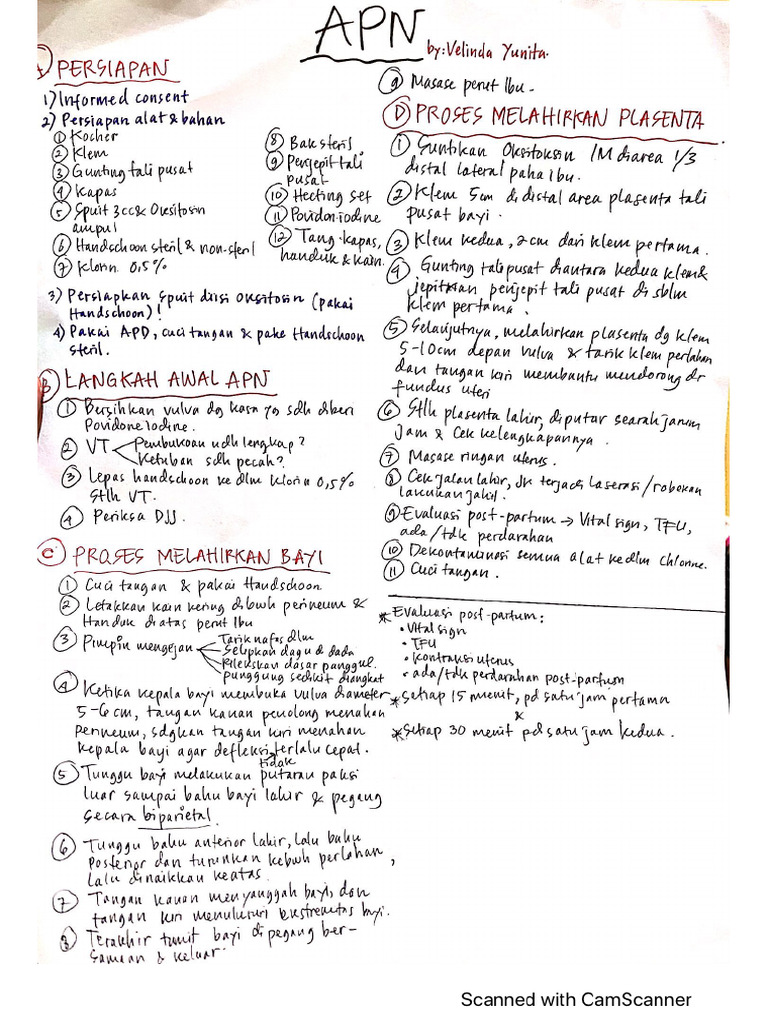 APN
by: Velinda Yunita.
A PERSIAPAN
1) Informed consent
2) Persiapan alat & bahan
① Kocher
② Klem
③ Gunting tali pusat
④ Kapas
⑤ Spuit 3cc & Oksitosin
ampul
⑥ Handschoon steril & non-steril
⑦ Klorin 0,5%
⑧ Bak steril
⑨ Penjepit tali
pusat
⑩ Hecting set
⑪ Povidon-iodine
⑫ Tang-kapas,
handuk & kain.
3) Persiapkan Spuit diisi Oksitosin (pakai
Handschoon)!
4) Pakai APD, cuci tangan & pake Handschoon
steril.
B LANGKAH AWAL APN
① Bersihkan vulva dg kasa yg sdh diberi
Povidone Iodine.
② VT
Pembukaan udh lengkap?
Ketuban sdh pecah?
③ Lepas handschoon ke dlm Klorin 0,5%
Stlh VT.
④ Periksa DJJ.
C PROSES MELAHIRKAN BAYI
① Cuci tangan & pakai Handschoon
② Letakkan kain kering dibwh perineum &
Handuk diatas perut Ibu
③ Pimpin mengejan
Tarik nafas dlm
Selipkan dagu di dada
Rilekskan dasar panggul.
Punggung sedikit diangkat
④ Ketika kepala bayi membuka vulva diameter
5-6 cm, tangan kanan penolong menahan
Perineum, sdgkan tangan kiri menahan
kepala bayi agar defleksi tidak terlalu cepat.
⑤ Tunggu bayi melakukan putaran paksi
luar sampai bahu bayi lahir & pegang
secara biparietal.
⑥ Tunggu bahu anterior lahir, lalu bahu
posterior dan turunkan kebwh perlahan,
lalu dinaikkan keatas.
⑦ Tangan kanan menyanggah bayi, dan
tangan kiri menulusuri ekstremitas bayi.
⑧ Terakhir tumit bayi dipegang ber-
samaan & keluar.
⑨ Masase perut Ibu.
D PROSES MELAHIRKAN PLASENTA
① Suntikan Oksitoksin IM diarea 1/3
distal lateral paha Ibu.
② Klem 5cm di distal area plasenta tali
pusat bayi.
③ Klem kedua, 2cm dari klem pertama.
④ Gunting tali pusat diantara kedua klem &
jepitkan penjepit tali pusat di sblm
klem pertama.
⑤ Selanjutnya, melahirkan plasenta dg klem
5-10cm depan vulva & tarik klem perlahan
dan tangan kiri membantu mendorong dr
fundus uteri
⑥ Stlh plasenta lahir, diputar searah jarum
Jam & Cek kelengkapannya.
⑦ Masase ringan uterus.
⑧ Cek jalan lahir, jk terjadi laserasi/robekan
lakukan jahit.
⑨ Evaluasi post-partum → Vital sign, TFU,
ada/tdk perdarahan
⑩ Dekontaminasi semua alat ke dlm chlorine.
⑪ Cuci tangan.
* Evaluasi post-partum:
• Vital sign
• TFU
• Kontraksi uterus
• ada/tdk perdarahan post-partum
* Setiap 15 menit, pd satu jam pertama
&
* Setiap 30 menit pd satu jam kedua.
Scanned with CamScanner